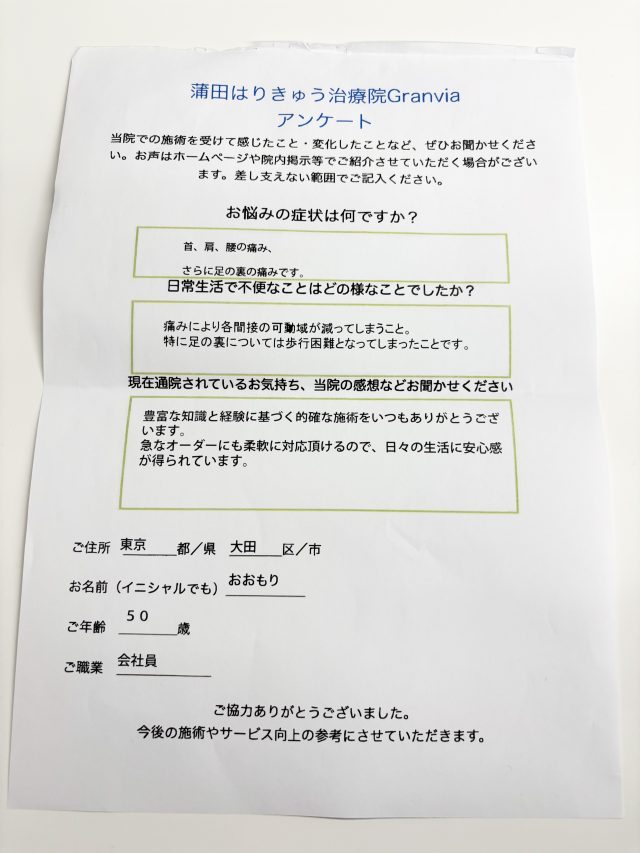 蒲田はりきゅう治療院Granvia
アンケート
当院での施術を受けて感じたこと・変化したことなど、ぜひお聞かせくださ
い。お声はホームページや院内掲示等でご紹介させていただく場合がござい
ます。差し支えない範囲でご記入ください。
お悩みの症状は何ですか？
首、肩、腰の痛み、
さらに足の裏の痛みです。
日常生活で不便なことはどの様なことでしたか？
痛みにより各間接の可動域が減ってしまうこと。
特に足の裏については歩行困難となってしまったことです。
現在通院されているお気持ち、当院の感想などお聞かせください
豊富な知識と経験に基づく的確な施術をいつもありがとうござ
います。
急なオーダーにも柔軟に対応頂けるので、日々の生活に安心感
が得られています。
ご住所 東京 都／県 大田 区／市
お名前（イニシャルでも）おおもり
ご年齢 ５０ 歳
ご職業 会社員
ご協力ありがとうございました。
今後の施術やサービス向上の参考にさせていただきます。